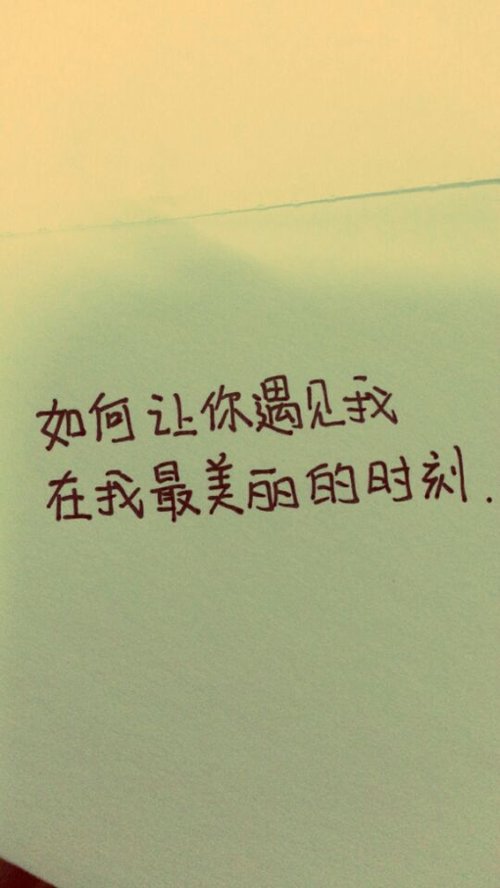 如何让你遇见我
在我最美丽的时刻.